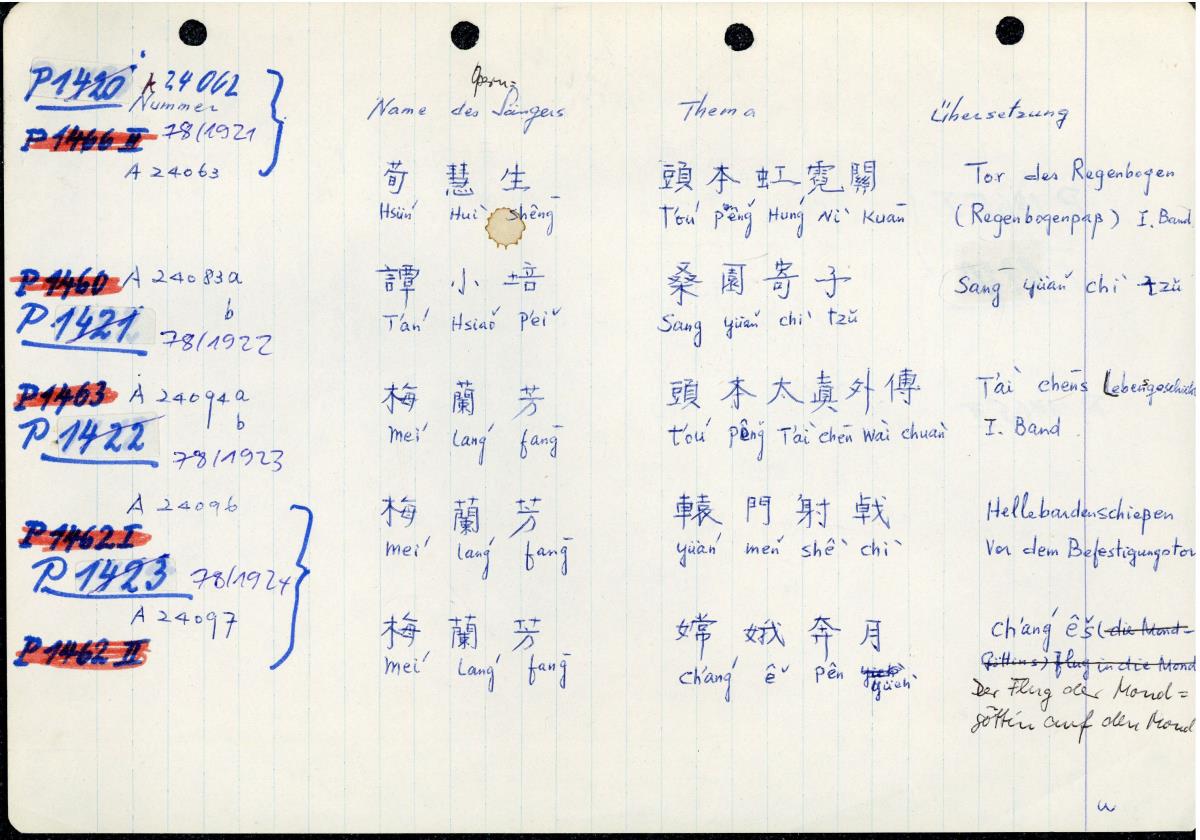 P1420 A 24062
Nummer
Opern=
Name des Sängers Thema Übersetzung
P1466 II 78/1921
A 24063
荀 慧 生 頭 本 虹 霓 關 Tor des Regenbogen
Hsün´ Hui` shēng T'ou´ pěng Hung´ Ni` Kuān (Regenbogenpaß) I. Band
P1460 A 24083a
b
譚 小 培 桑 園 寄 子 Sang yüan´ chi` tzŭ
P1421 78/1922
T'an´ Hsiaŏ P'ei´ Sang yüan´ chi` tzŭ
P1463 A 24094a
b
梅 蘭 芳 頭 本 太 眞 外 傳 T'ai` chēn's Lebensgeschicht
P1422 78/1923
Mei´ Lang´ fang̅ t'ou´ pěng T'ai` chēn Wai` chuan` I. Band
A 24096
梅 蘭 芳 轅 門 射 戟 Hellebardenschießen
P1462 I
mei´ Lang´ fang̅ yüan´ men´ shê` chi` Vor dem Befestigungstor
P1423 78/1924
A 24097
梅 蘭 芳 嫦 娥 奔 月 Ch'ang´ ê's (die Mond=
P1462 II
Mei´ Lang´ fang̅ Ch'ang´ ê´ pên yüeh` Göttins) Flug in die Mond
Der Flug der Mond=
göttin auf den Mond